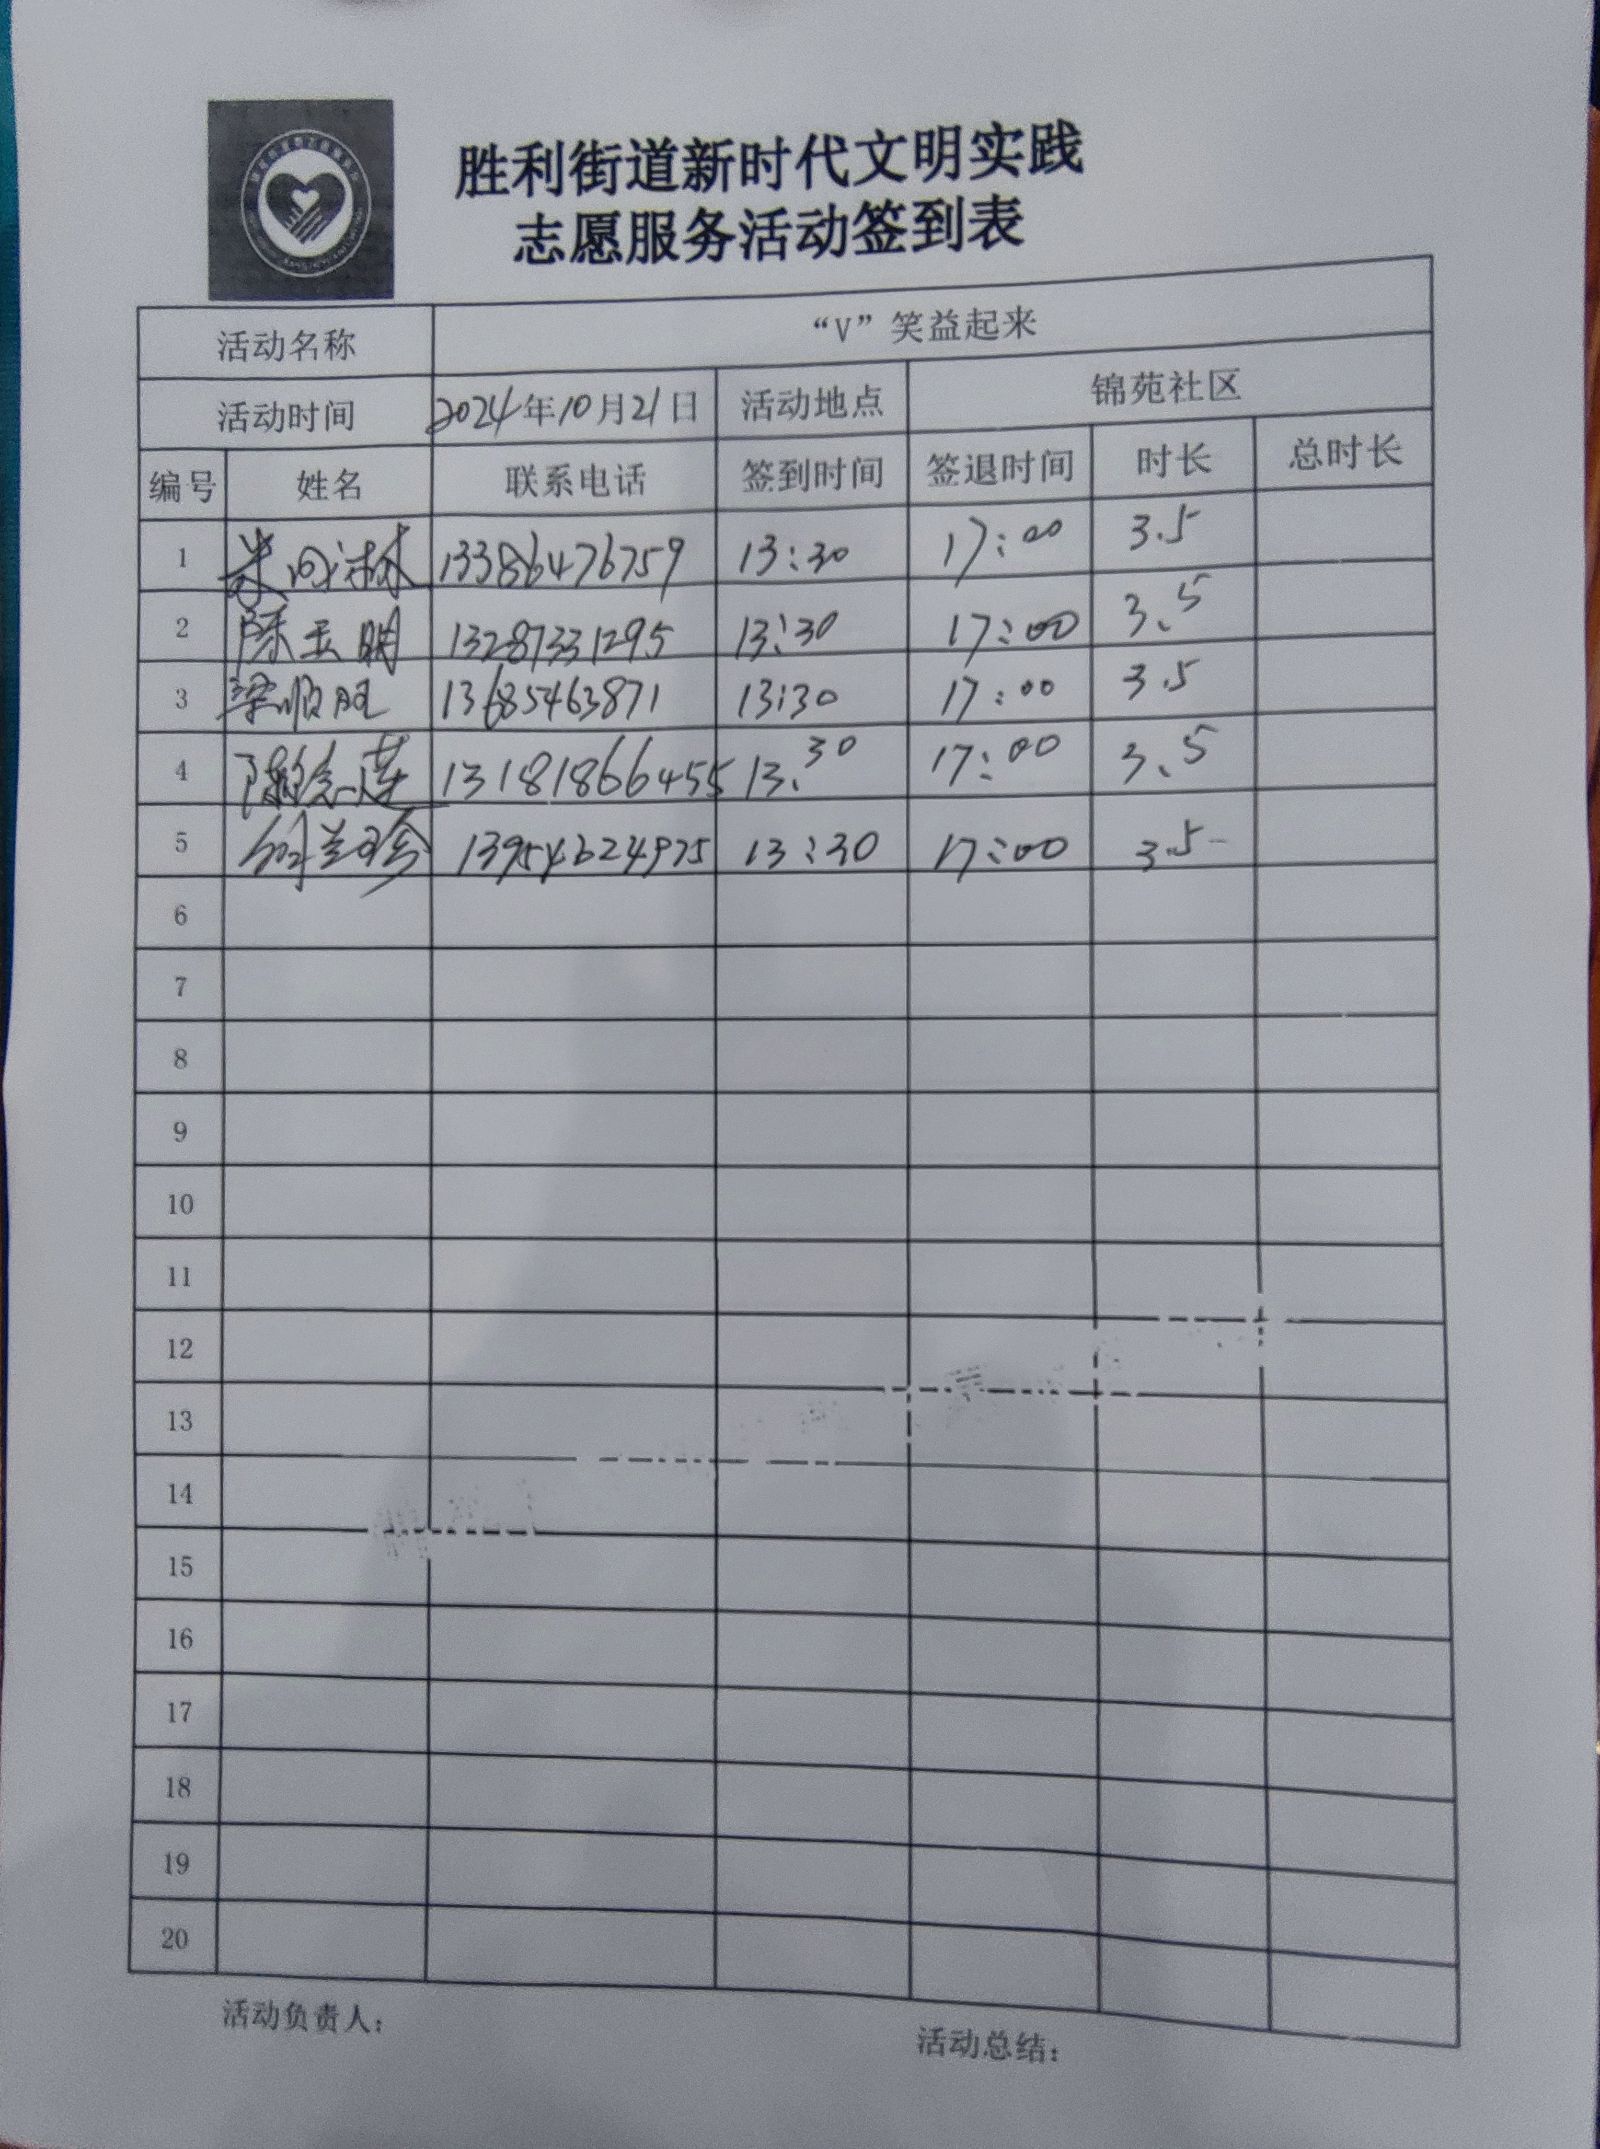 胜利街道新时代文明实践
志愿服务活动签到表
活动名称 “V”笑益起来
活动时间 2024年10月21日 活动地点 锦苑社区
编号 姓名 联系电话 签到时间 签退时间 时长 总时长
1 13386476759 13:30 17:00 3.5
2 陈玉明 13287331295 13:30 17:00 3.5
3 梁顺旺 13685463871 13:30 17:00 3.5
4 13181866455 13.30 17:00 3.5
5 13954624975 13:30 17:00 3.5
6
7
8
9
10
11
12
13
14
15
16
17
18
19
20
活动负责人: 活动总结: